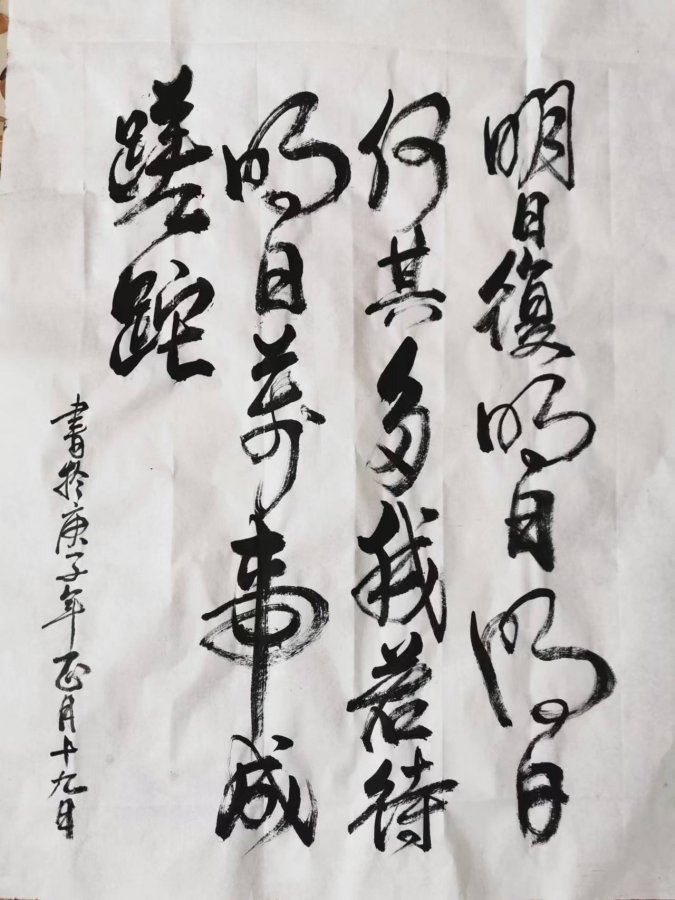 明日復明日明日
何其多我若待
明日萬事成
蹉跎
書於庚子年正月十九日